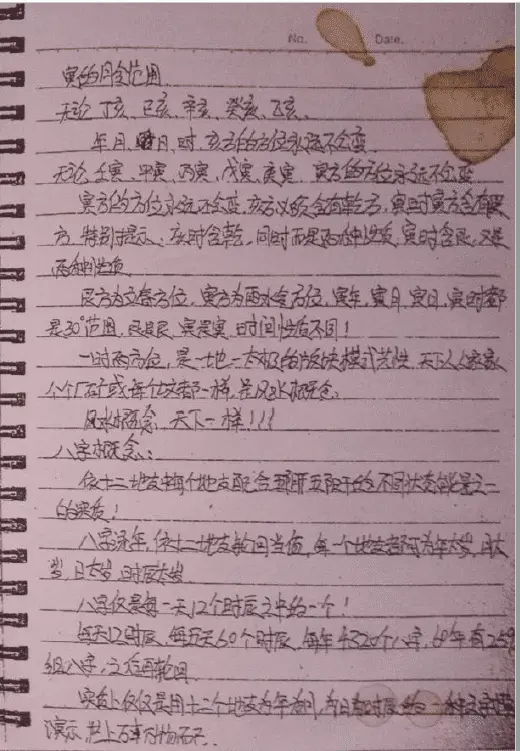 No. Date.
寅的月令范围
无论丁亥、己亥、辛亥、癸亥、乙亥、
年月、日、时、亥方的方位永远不会变
无论壬寅、甲寅、丙寅、戊寅、庚寅 寅方的方位永远不会变
寅方的方位永远不会变,亥方又必须含有乾方,寅时寅方含有艮
方 特别提示:亥时含乾,同时而是两种性质,寅时含艮,又是
两种性质
艮方为立春方位,寅方为雨水含方位,寅年,寅月,寅日,寅时都
是30°范围,艮是艮,寅是寅,时间性质不同!
一时两方位,是一地一太极的版块模式共性 天下人人家家
个个厂矿或每个地支都一样,是风水概念
风水概念 天下一样!!!
八字概念:
依十二地支中每个地支配合五阳五阴干的不同状态能量之一
的突发!
八字流年,依十二地支轮回当值,每一个地支都可为年太岁,月太
岁,日太岁,时辰太岁
八字仅是每一天12个时辰之中的一个!
每天12时辰,每五天60个时辰,每年4320个八字,60年有259
组八字,之后再轮回
实质上仅仅是用十二个地支为年为月,为日为时辰的一种
演示 世上万事万物而已.